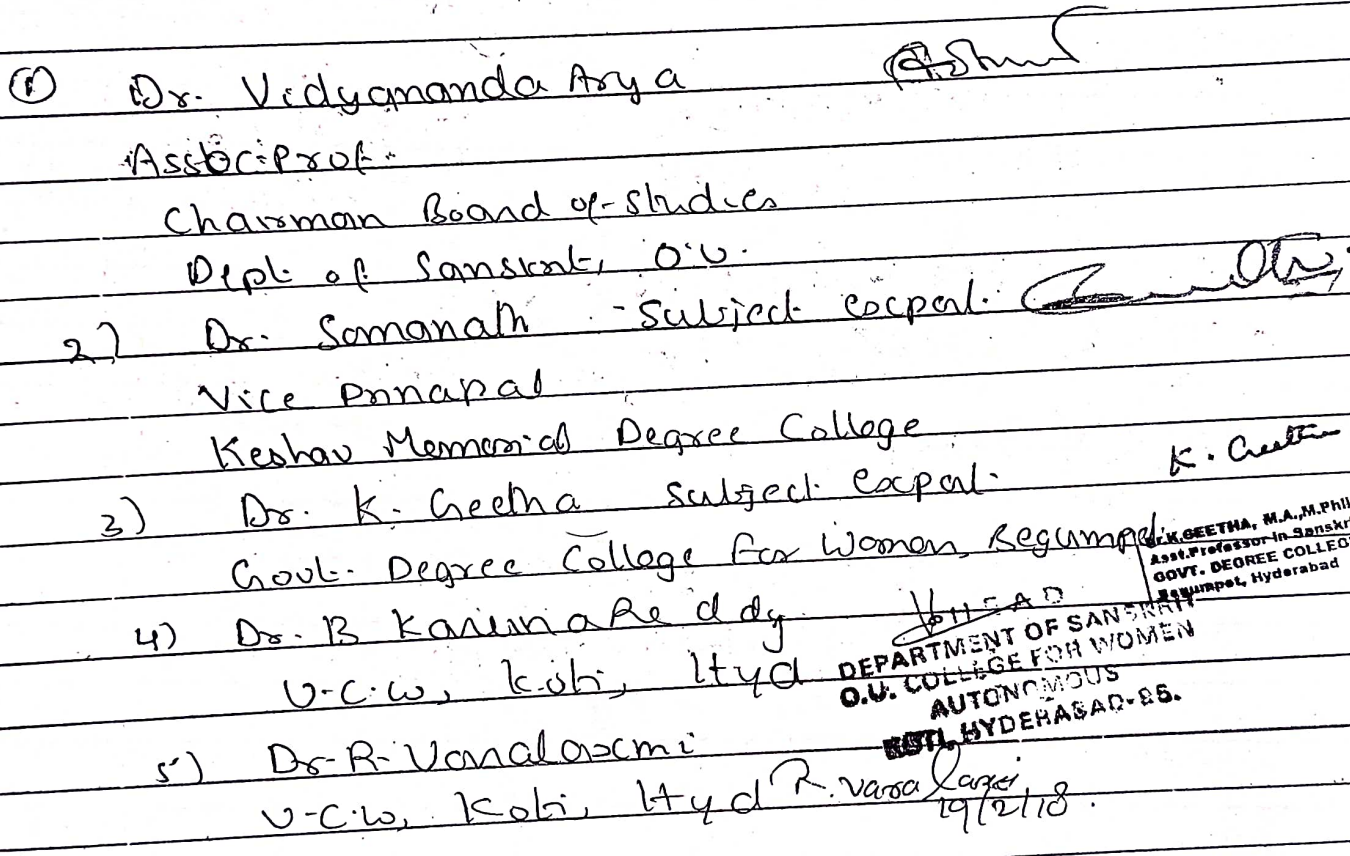 ① Dr. Vidyananda Arya
Assoc. Prof.
Chairman Board of Studies
Dept. of Sanskrit, O.U.
2) Dr. Somanath - Subject expert.
Vice Principal
Keshav Memorial Degree College
3) Dr. K. Geetha Subject expert. K. Geetha
Govt. Degree College for Women, Begumpet.
Dr. K. GEETHA, M.A., M.Phil
Asst. Professor in Sanskri
GOVT. DEGREE COLLEG
Begumpet, Hyderabad
4) Dr. B Karuna Reddy
U.C.W, Koti, Hyd
HEAD
DEPARTMENT OF SANSKRIT
O.U. COLLEGE FOR WOMEN
AUTONOMOUS
KOTI, HYDERABAD-95.
5) Dr. R. Varalaxmi
U.C.W, Koti, Hyd R. Varalaxmi
19/2/18.